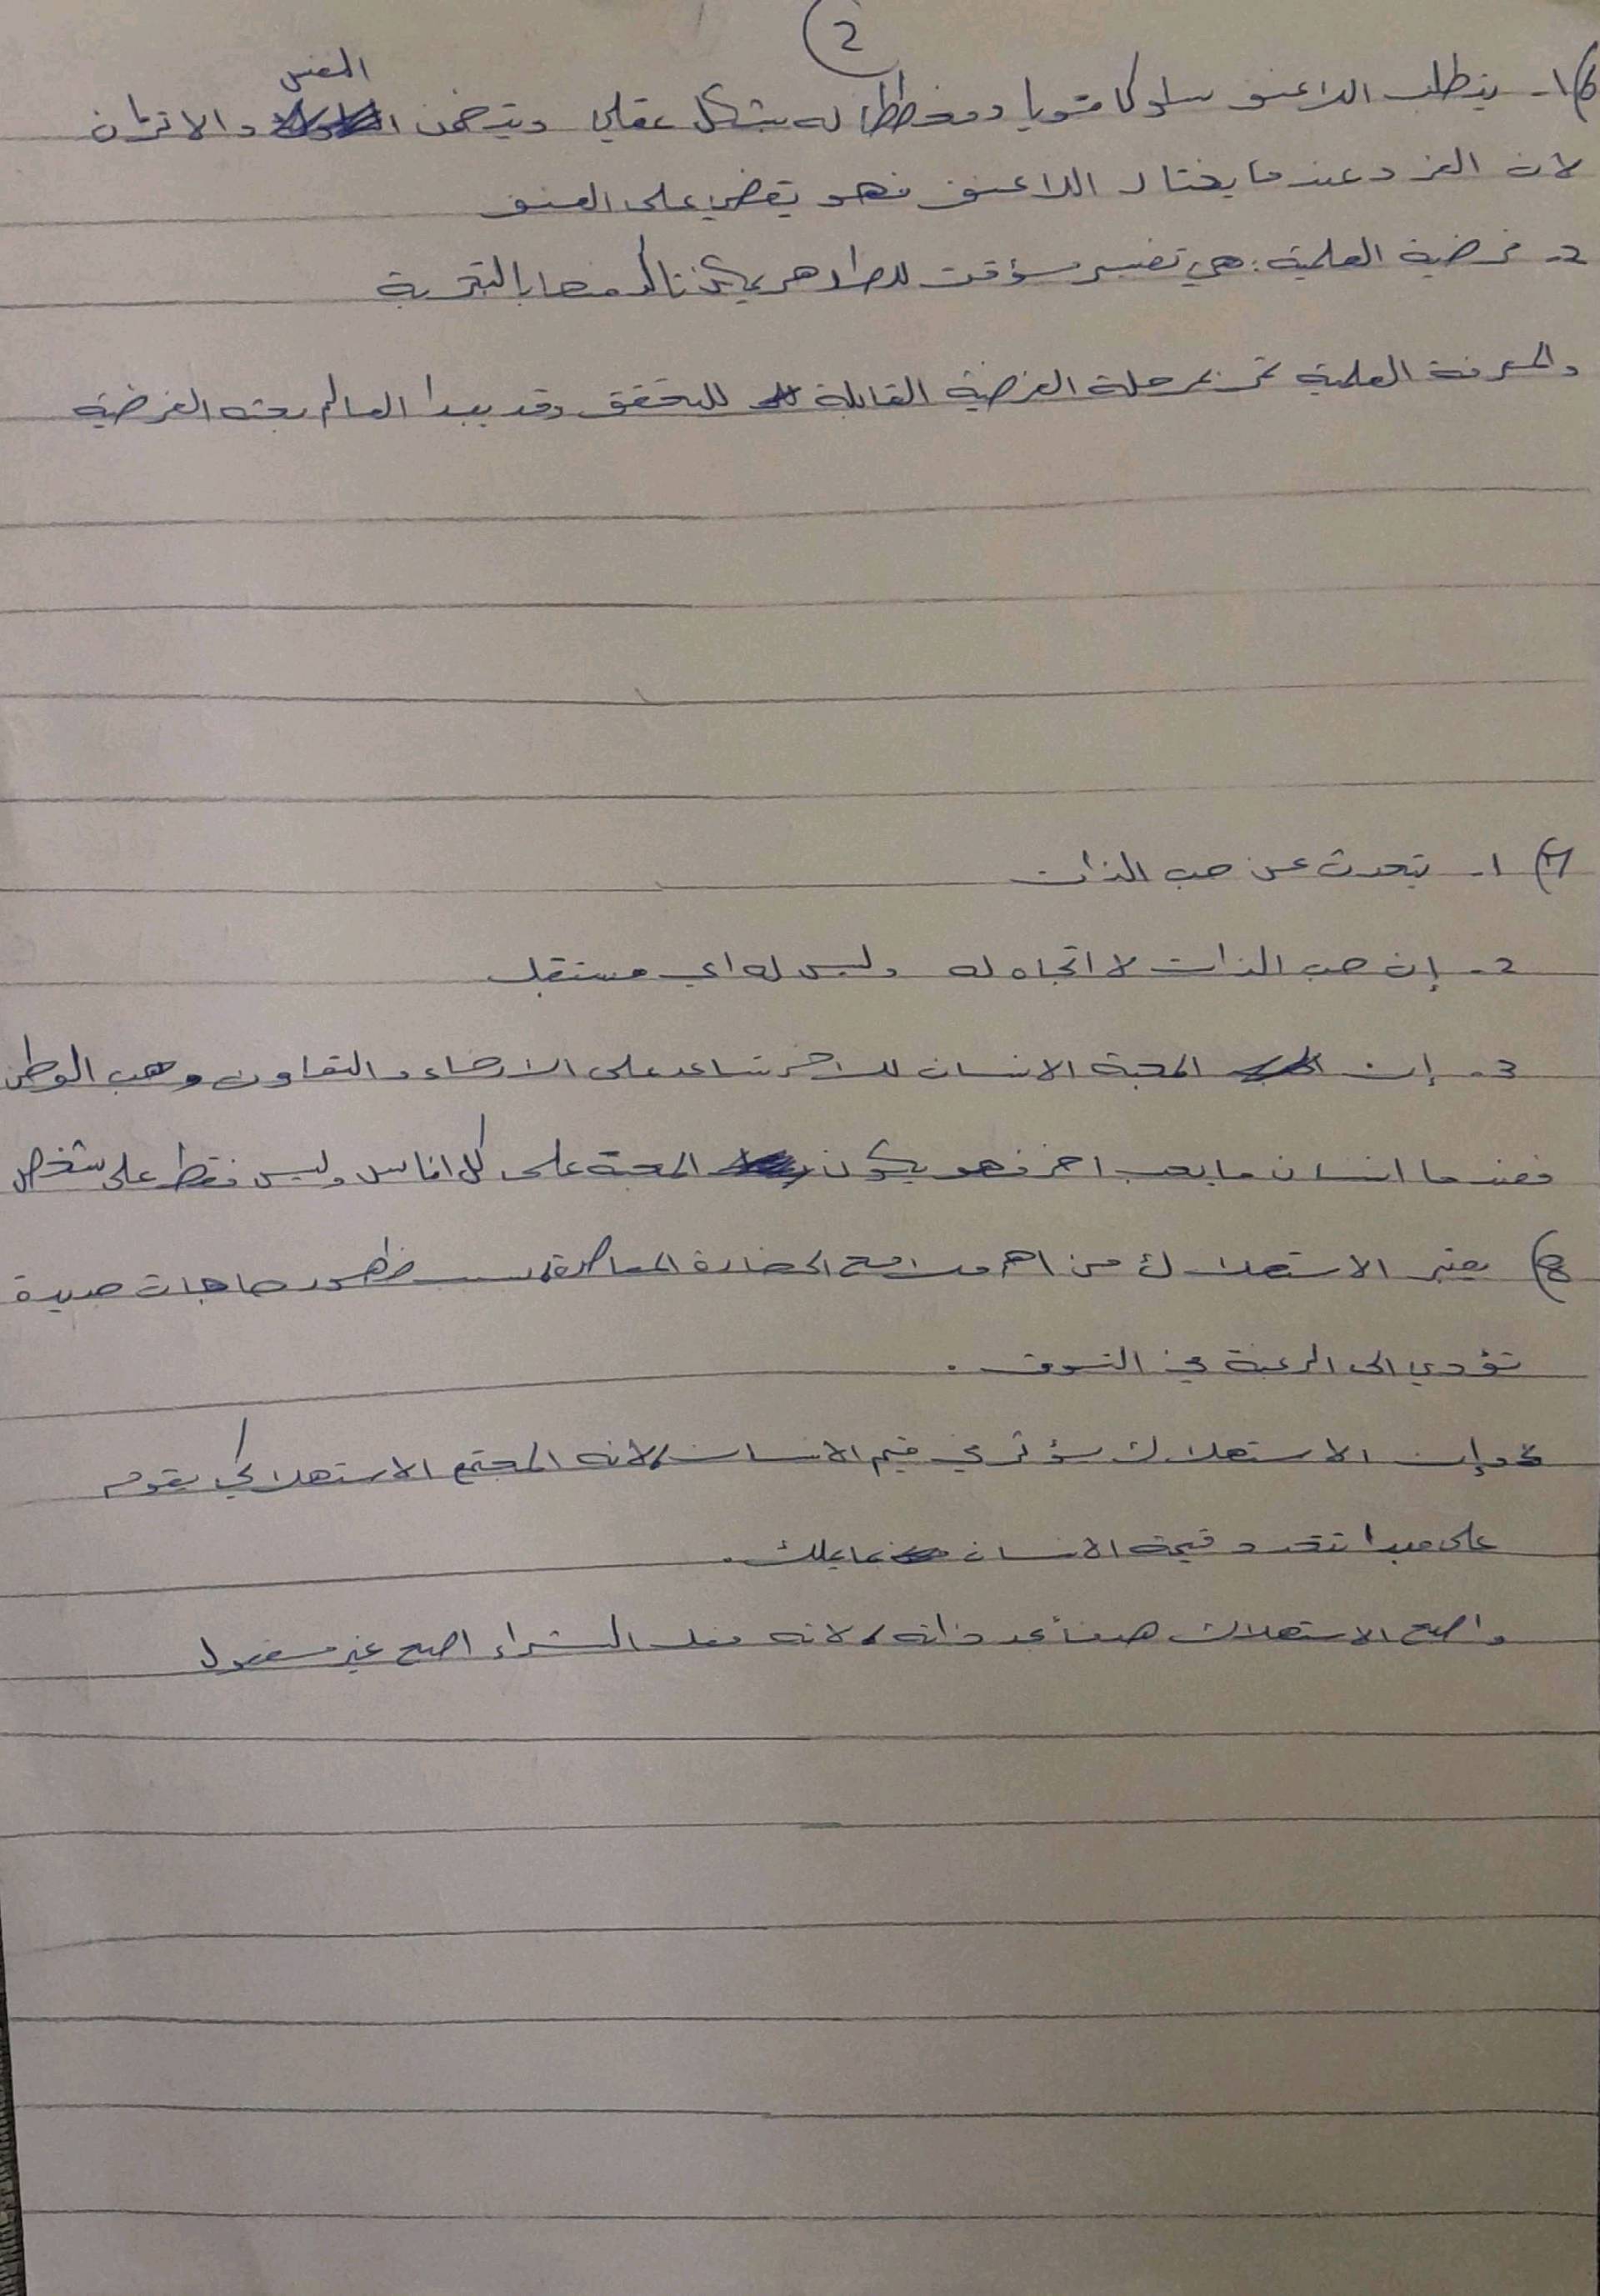 2
6) 1- يتطلب اللاعنف سلوكا قويا ومخططا له بشكل عقلي ويتضمن النفس والاتزان
لان الفرد عندما يختار اللاعنف فهو يقضي على العنف
2- فرضية العلمية: هي تفسير مؤقت للظواهر يمكن تاكد منها بالتجربة
والمعرفة العلمية تمر بمرحلة الفرضية القابلة للتحقق وقد يبدا العالم بحثه الفرضية
7) 1- يتحدث عن حب الذات
2- إن حب الذات لا اتجاه له وليس له اي مستقبل
3- إن المحبة الانسان للاخر تساعد على الارضاء و التعاون وحب الوطن
فعندما انسان ما يحب اخر فهو يكون المحبة على كل اناس وليس فقط على شخص
8) يعتبر الاستهلاك من اهم ملامح الحضارة المعاصرة، بسبب ظهور حاجات جديدة
تؤدي الى الرغبة في التسوق.
وإن الاستهلاك يؤثر في قيم الانسان لانه المجتمع الاستهلاكي يقوم
على مبدا تتحدد قيمة الانسان بما يملك.
واصبح الاستهلاك هدفاً بحد ذاته، لانه فعل الشراء اصبح غير مسؤول